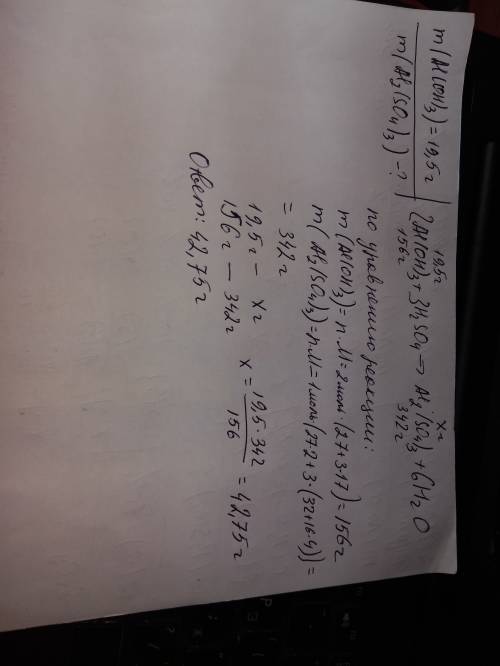 m(Al(OH)3) = 19,5г
m(Al2(SO4)3) - ?
19,5г xг
2Al(OH)3 + 3H2SO4 → Al2(SO4)3 + 6H2O
156г 342г
по уравнению реакции:
m(Al(OH)3) = n·M = 2моль·(27+3·17) = 156г
m(Al2(SO4)3) = n·M = 1моль·(27·2+3·(32+16·4)) =
= 342г
19,5г - xг
156г - 342г x = 19,5·342 / 156 = 42,75г
Ответ: 42,75г